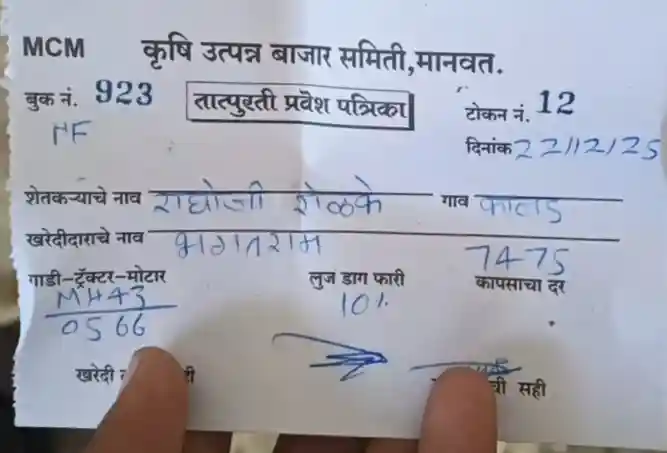 MCM कृषि उत्पन्न बाजार समिती,मानवत.
बुक नं. 923 तात्पुरती प्रवेश पत्रिका टोकन नं. 12
HF दिनांक 22/12/25
शेतकऱ्याचे नाव राघोजी शेळके गाव
खरेदीदाराचे नाव भगतराम
7475
गाडी-ट्रॅक्टर-मोटार लुज डाग फारी कापसाचा दर
MH43 10%
0566
खरेदी ची सही